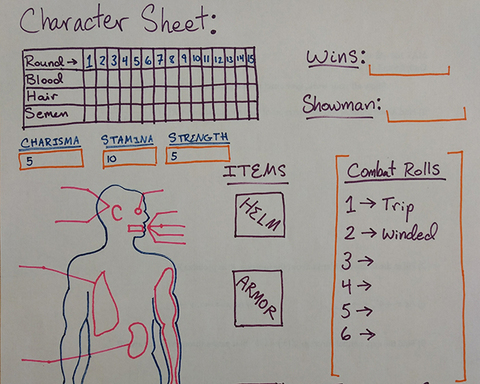 Character Sheet:
Round → 1 2 3 4 5 6 7 8 9 10 11 12 13 14 15
Blood
Hair
Semen
Wins:
Showman:
CHARISMA STAMINA STRENGTH
5 10 5
ITEMS
HELM
ARMOR
C
Combat Rolls
1 → Trip
2 → Winded
3 →
4 →
5 →
6 →